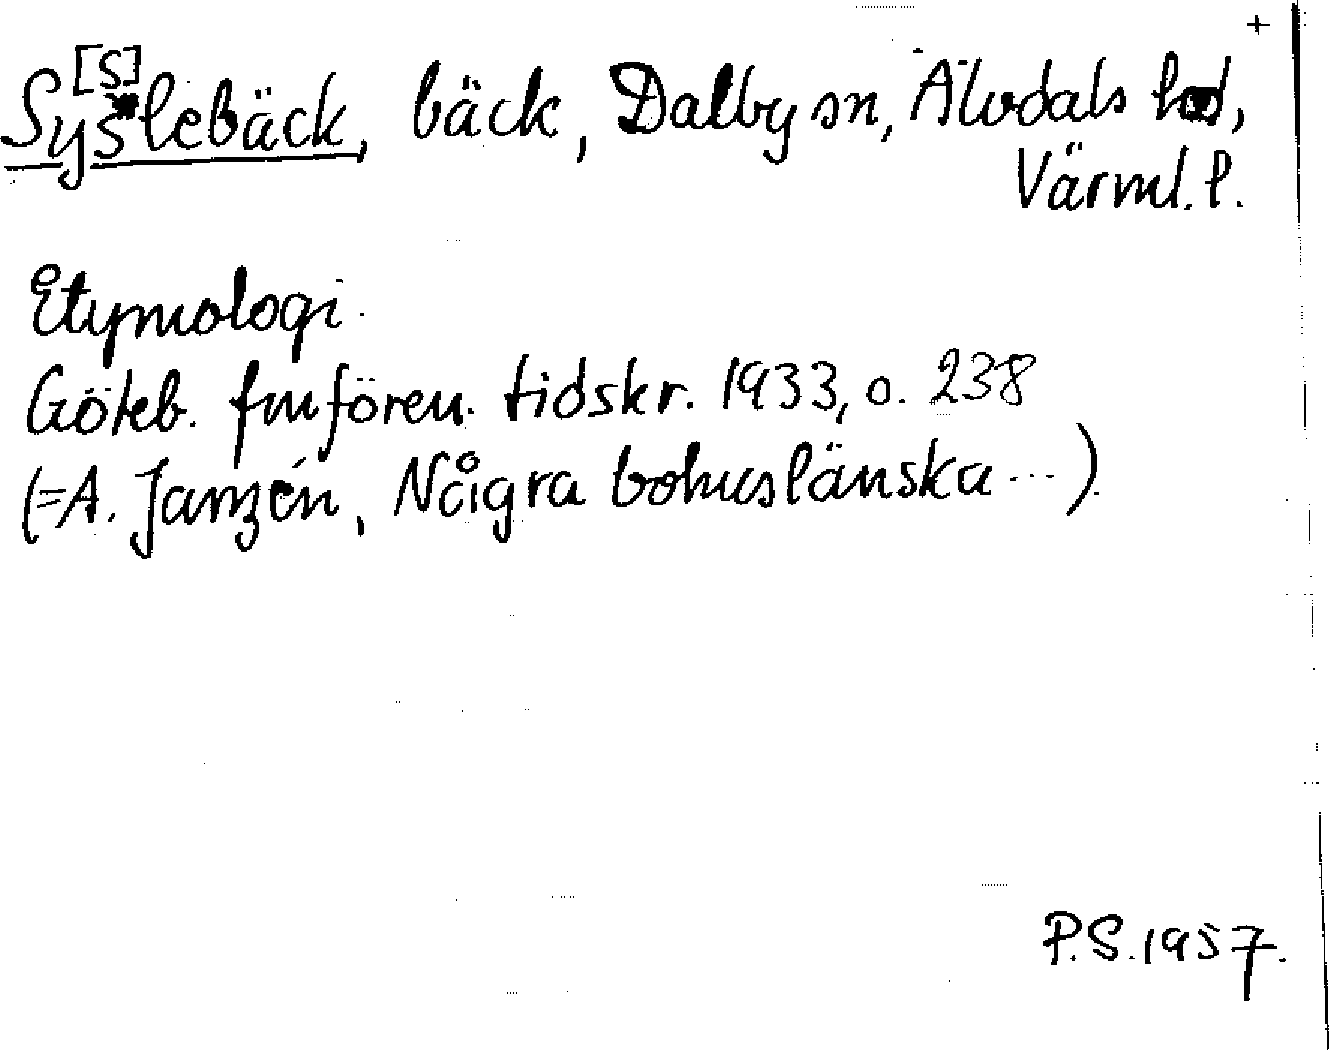 +
Sys[s]lebäck, bäck, Dalby sn, Älvdals hd,
Värml. l.
Etymologi.
Göteb. fmfören. tidskr. 1933, s. 238
(=A. Janzén, Några bohuslänska ...).
P.S. 1957.